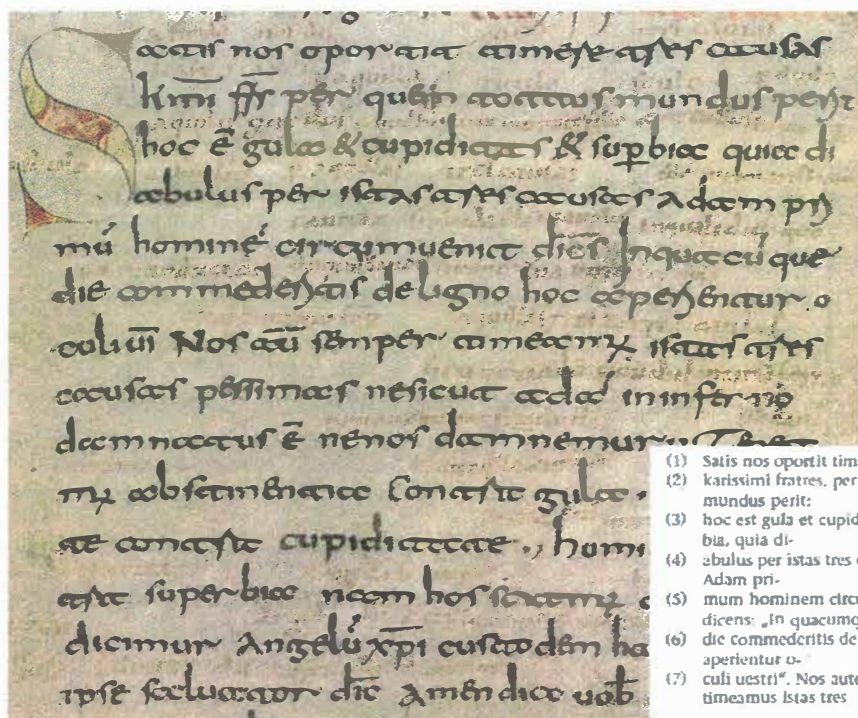 Satis nos oportit timere tres causas
frs per quem totus mundus perit
hoc ē gula & cupiditas & sup̱bia quia di
abulus per istas tres causas Adam pri
mū hominē circumuenit diēs Inquacūque
die commederitis deligno hoc aperientur o
culi ūri Nos aū semper timeamus istas tres
causas pessimas nesicut adā ininferno
damnatus ē nenos damnemur
mus abstinentia Contra gula ·
te contra cupiditate ., homi
tra superbia nam hos sciamus
dicimur Angelū xp̄i custodem ha
ipse saluator dic̄ Amen dico uob̄
(1) Satis nos oportit tim
(2) karissimi fratres, per
mundus perit:
(3) hoc est gula et cupid
bia, quia di-
(4) abulus per istas tres
Adam pri-
(5) mum hominem circu
dicens: „In quacumq
(6) die commederitis de
aperientur o-
(7) culi uestri“. Nos aute
timeamus istas tres